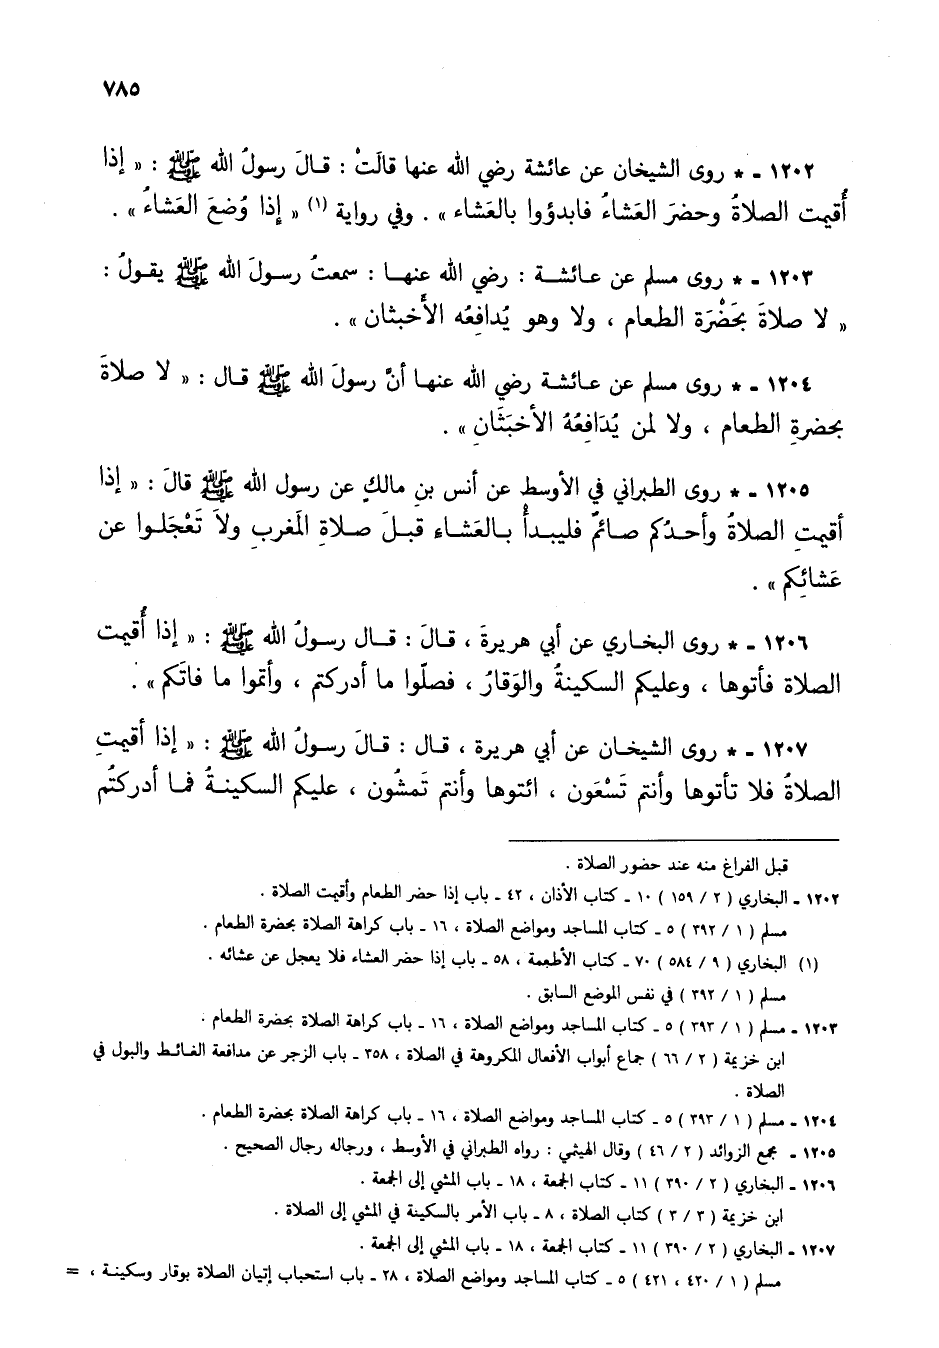 ٧٨٥
١٢٠٢ - * روى الشيخان عن عائشة رضي الله عنها قالَتْ : قالَ رسولُ الله ﷺ : « إذا
أُقيمت الصلاةُ وحضرَ العَشاءُ فابدؤوا بالعَشاء » . وفي رواية (١) « إِذا وُضعَ العَشاءُ » .
١٢٠٣ - * روى مسلم عن عائشة : رضي الله عنها : سمعتُ رسولَ الله ﷺ يقولُ :
« لا صلاةَ بحَضْرَة الطعام ، ولا وهو يُدافعُه الأَخبثان » .
١٢٠٤ - * روى مسلم عن عائشة رضي الله عنها أنَّ رسولَ الله ﷺ قال : « لا صلاةَ
بحضرةِ الطعام ، ولا لمن يُدَافِعُهُ الأخبَثَانِ » .
١٢٠٥ - * روى الطبراني في الأوسط عن أنس بنِ مالكٍ عن رسول الله ﷺ قالَ : « إذا
أقيمتِ الصلاةُ وأحدُكم صائمٌ فليبدأْ بالعَشاء قبلَ صلاةِ المَغربِ ولاَ تَعْجَلوا عن
عَشائِكم » .
١٢٠٦ - * روى البخاري عن أبي هريرةَ ، قالَ : قال رسولُ الله ﷺ : « إذا أُقيمت
الصلاة فأتوها ، وعليكم السكينةُ والوَقارُ ، فصلّوا ما أدركتم ، وأتموا ما فاتَكم » .
١٢٠٧ - * روى الشيخان عن أبي هريرة ، قال : قالَ رسولُ الله ﷺ : « إذا أقيمتِ
الصلاةُ فلا تأتوها وأنتم تَسْعَون ، ائتوها وأنتم تَمشُون ، عليكم السكينةُ فما أدركتُم
قبل الفراغ منه عند حضور الصلاة .
١٢٠٢ - البخاري ( ٢ / ١٥٩ ) ١٠ - كتاب الأذان ، ٤٢ - باب إذا حضر الطعام وأقيمت الصلاة .
مسلم ( ١ / ٣٩٢ ) ٥ - كتاب المساجد ومواضع الصلاة ، ١٦ - باب كراهة الصلاة بحضرة الطعام .
(١) البخاري ( ٩ / ٥٨٤ ) ٧٠ - كتاب الأطعمة ، ٥٨ - باب إذا حضر العشاء فلا يعجل عن عشائه .
مسلم ( ١ / ٣٩٢ ) في نفس الموضع السابق .
١٢٠٣ - مسلم ( ١ / ٣٩٣ ) ٥ - كتاب المساجد ومواضع الصلاة ، ١٦ - باب كراهة الصلاة بحضرة الطعام .
ابن خزيمة ( ٢ / ٦٦ ) جماع أبواب الأفعال المكروهة في الصلاة ، ٣٥٨ - باب الزجر عن مدافعة الغائط والبول في
الصلاة .
١٢٠٤ - مسلم ( ١ / ٣٩٣ ) ٥ - كتاب المساجد ومواضع الصلاة ، ١٦ - باب كراهة الصلاة بحضرة الطعام .
١٢٠٥ - مجمع الزوائد ( ٢ / ٤٦ ) وقال الهيثمي : رواه الطبراني في الأوسط ، ورجاله رجال الصحيح .
١٢٠٦ - البخاري ( ٢ / ٣٩٠ ) ١١ - كتاب الجمعة ، ١٨ - باب المشي إلى الجمعة .
ابن خزيمة ( ٣ / ٣ ) كتاب الصلاة ، ٨ - باب الأمر بالسكينة في المشي إلى الصلاة .
١٢٠٧ - البخاري ( ٢ / ٣٩٠ ) ١١ - كتاب الجمعة ، ١٨ - باب المشي إلى الجمعة .
مسلم ( ١ / ٤٢٠ ، ٤٢١ ) ٥ - كتاب المساجد ومواضع الصلاة ، ٢٨ - باب استحباب إتيان الصلاة بوقار وسكينة ، =